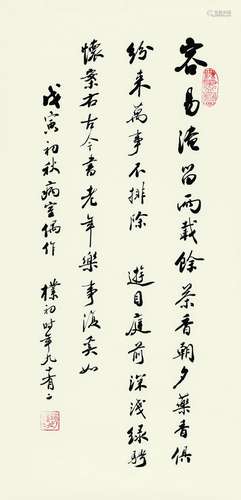 容易淹留兩載餘茶香朝夕藥香俱
紛来萬事不排除 遊目庭前深淺綠騁
懷案右古今書老年樂事復奚如
戊寅初秋病室偶作 樸初时年九十有二